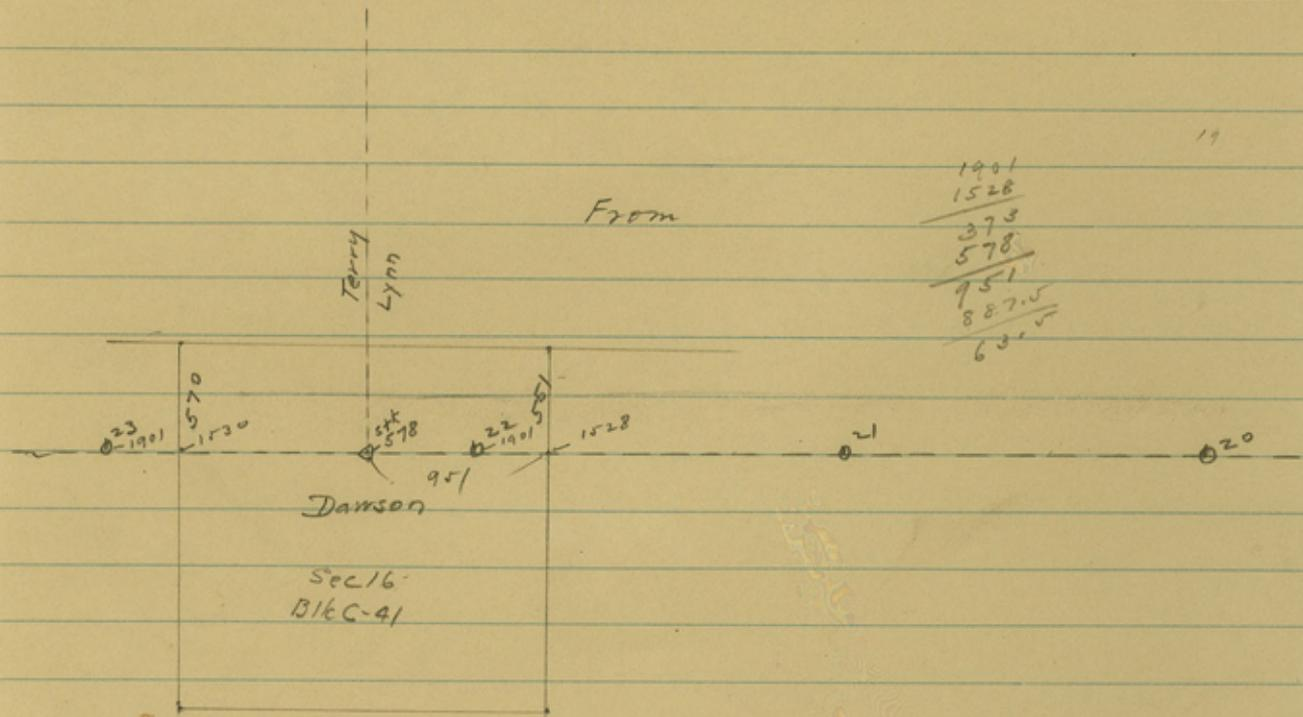 19
1901
1528
373
578
951
887.5
63.5
From
Terry
Lynn
570
561
23
1901
1530
stk
578
22
1901
1528
21
20
951
Dawson
Sec 16
Blk C-41